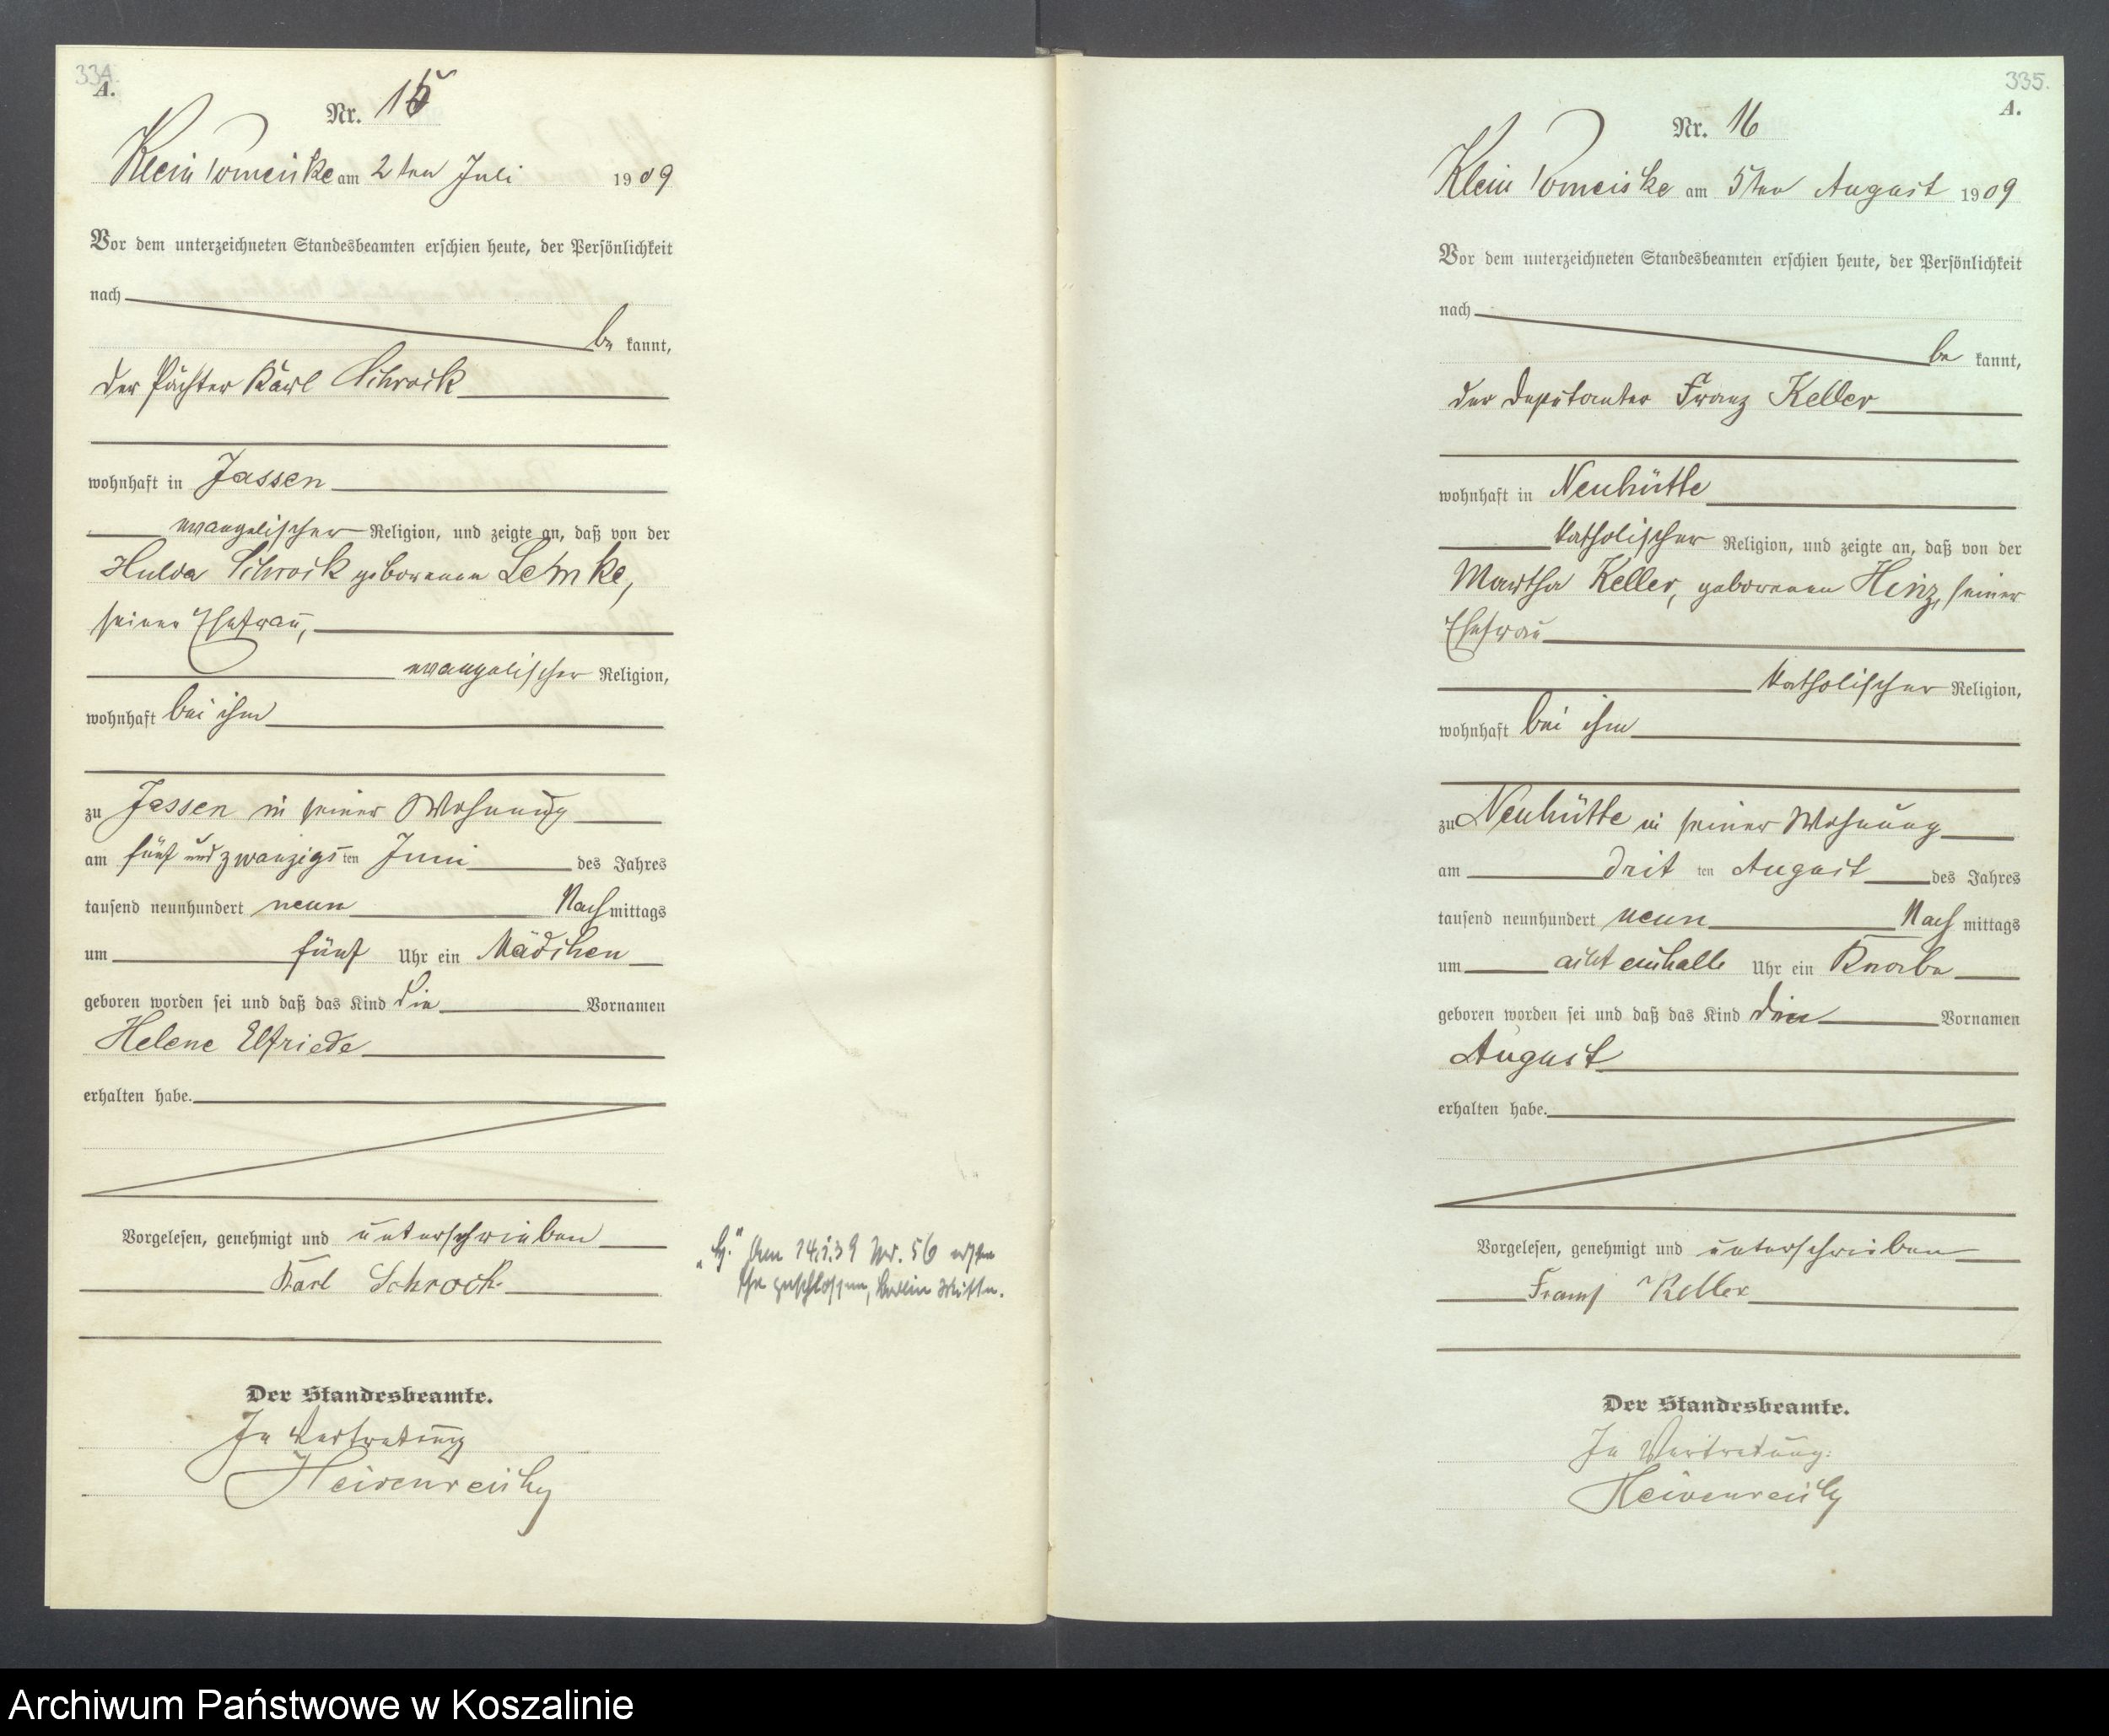 334.
A.
Nr. 15
Klein Pomeiske am 2ten Juli 1909
Vor dem unterzeichneten Standesbeamten erschien heute, der Persönlichkeit
nach
be kannt,
der Pächter Karl Schrock
wohnhaft in Jassen
evangelischer Religion, und zeigte an, daß von der
Hulda Schrock geborenen Lemke,
seiner Ehefrau,
evangelischer Religion,
wohnhaft bei ihm
zu Jassen in seiner Wohnung
am fünf und zwanzigsten Juni des Jahres
tausend neunhundert neun Nachmittags
um fünf Uhr ein Mädchen
geboren worden sei und daß das Kind die Vornamen
Helene Elfriede
erhalten habe.
Vorgelesen, genehmigt und unterschrieben
Karl Schrock
Der Standesbeamte.
In Vertretung
Heidenreich
Am 14.1.39 Nr. 56 erste
Ehe geschlossen, Berlin Mitte.
335.
A.
Nr. 16
Klein Pomeiske am 5ten August 1909
Vor dem unterzeichneten Standesbeamten erschien heute, der Persönlichkeit
nach
be kannt,
der Deputanter Franz Keller
wohnhaft in Neuhütte
katholischer Religion, und zeigte an, daß von der
Martha Keller, geborenen Hinz, seiner
Ehefrau
katholischer Religion,
wohnhaft bei ihm
zu Neuhütte in seiner Wohnung
am drit ten August des Jahres
tausend neunhundert neun Nach mittags
um acht einhalb Uhr ein Knabe
geboren worden sei und daß das Kind den Vornamen
August
erhalten habe.
Vorgelesen, genehmigt und unterschrieben
Franz Keller
Der Standesbeamte.
In Vertretung:
Heidenreich
Archiwum Państwowe w Koszalinie